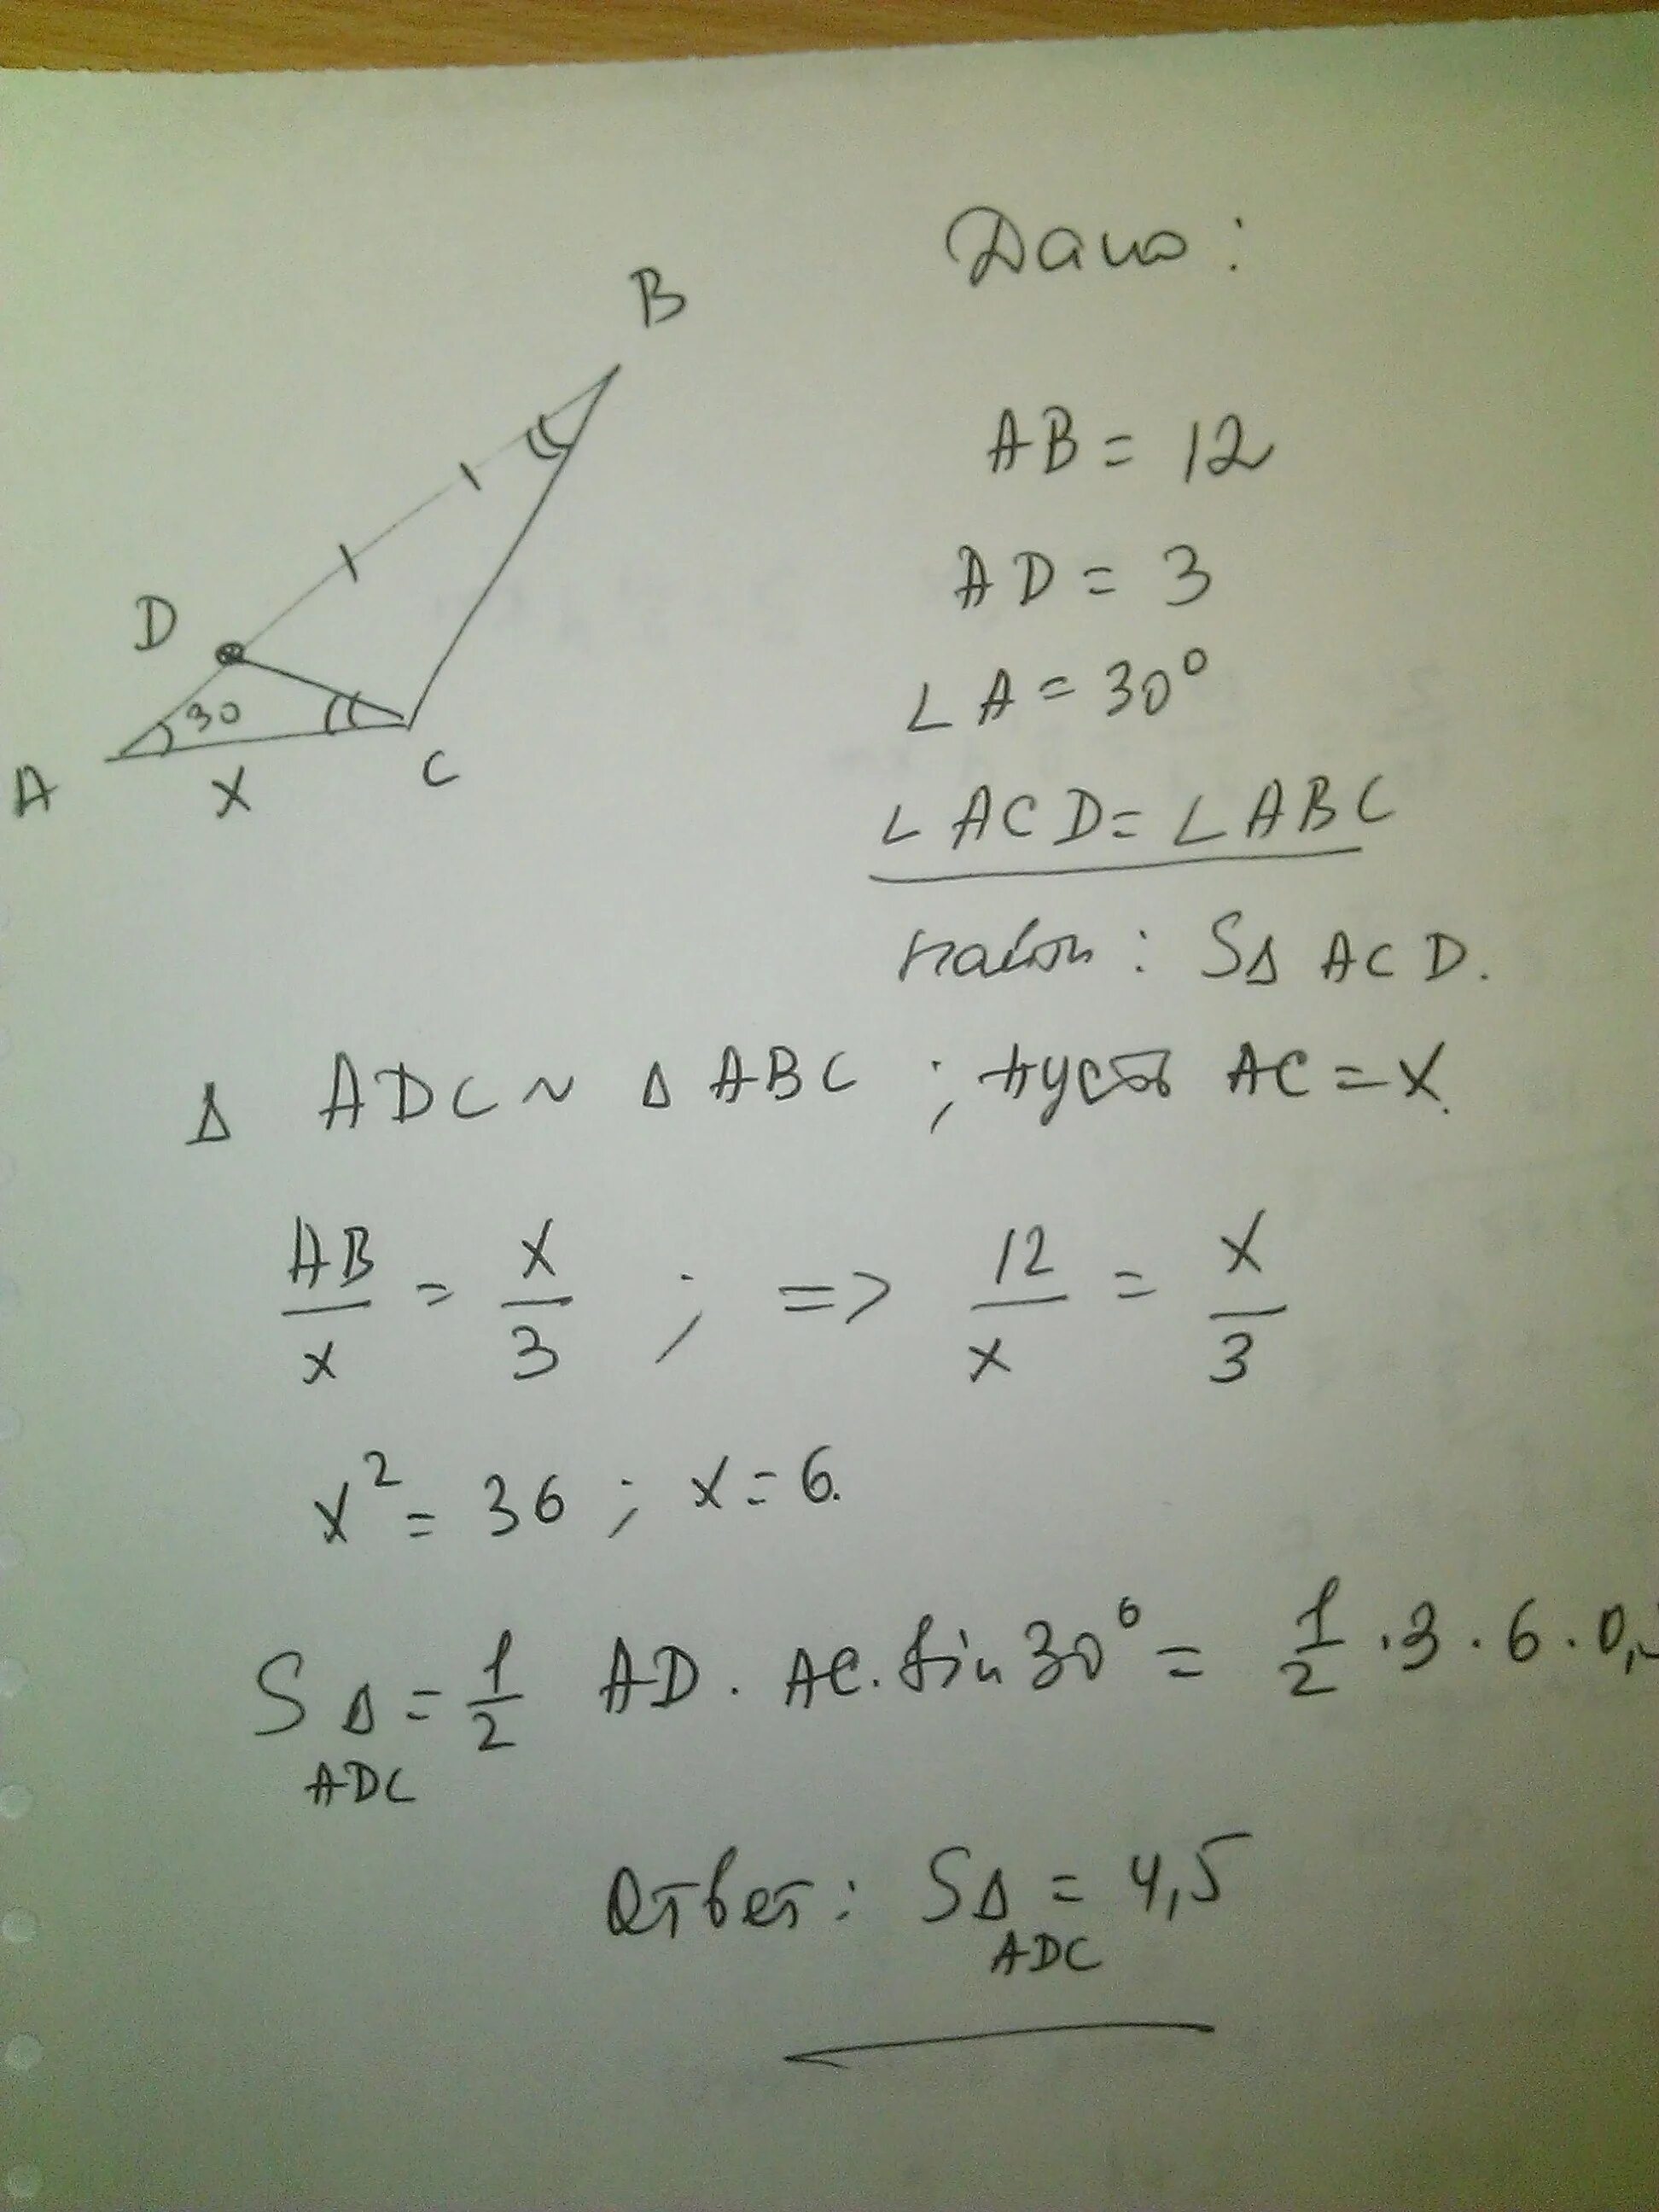 Дано:
B
AB = 12
AD = 3
D
∠A = 30°
30
A
x
C
∠ACD = ∠ABC
Найти: S△ ACD.
△ ADC ~ △ ABC ; пусть AC = x.
AB/x = x/3 ; => 12/x = x/3
x² = 36 ; x = 6.
S△ADC = 1/2 AD · AC · sin 30° = 1/2 · 3 · 6 · 0,
Ответ: S△ADC = 4,5